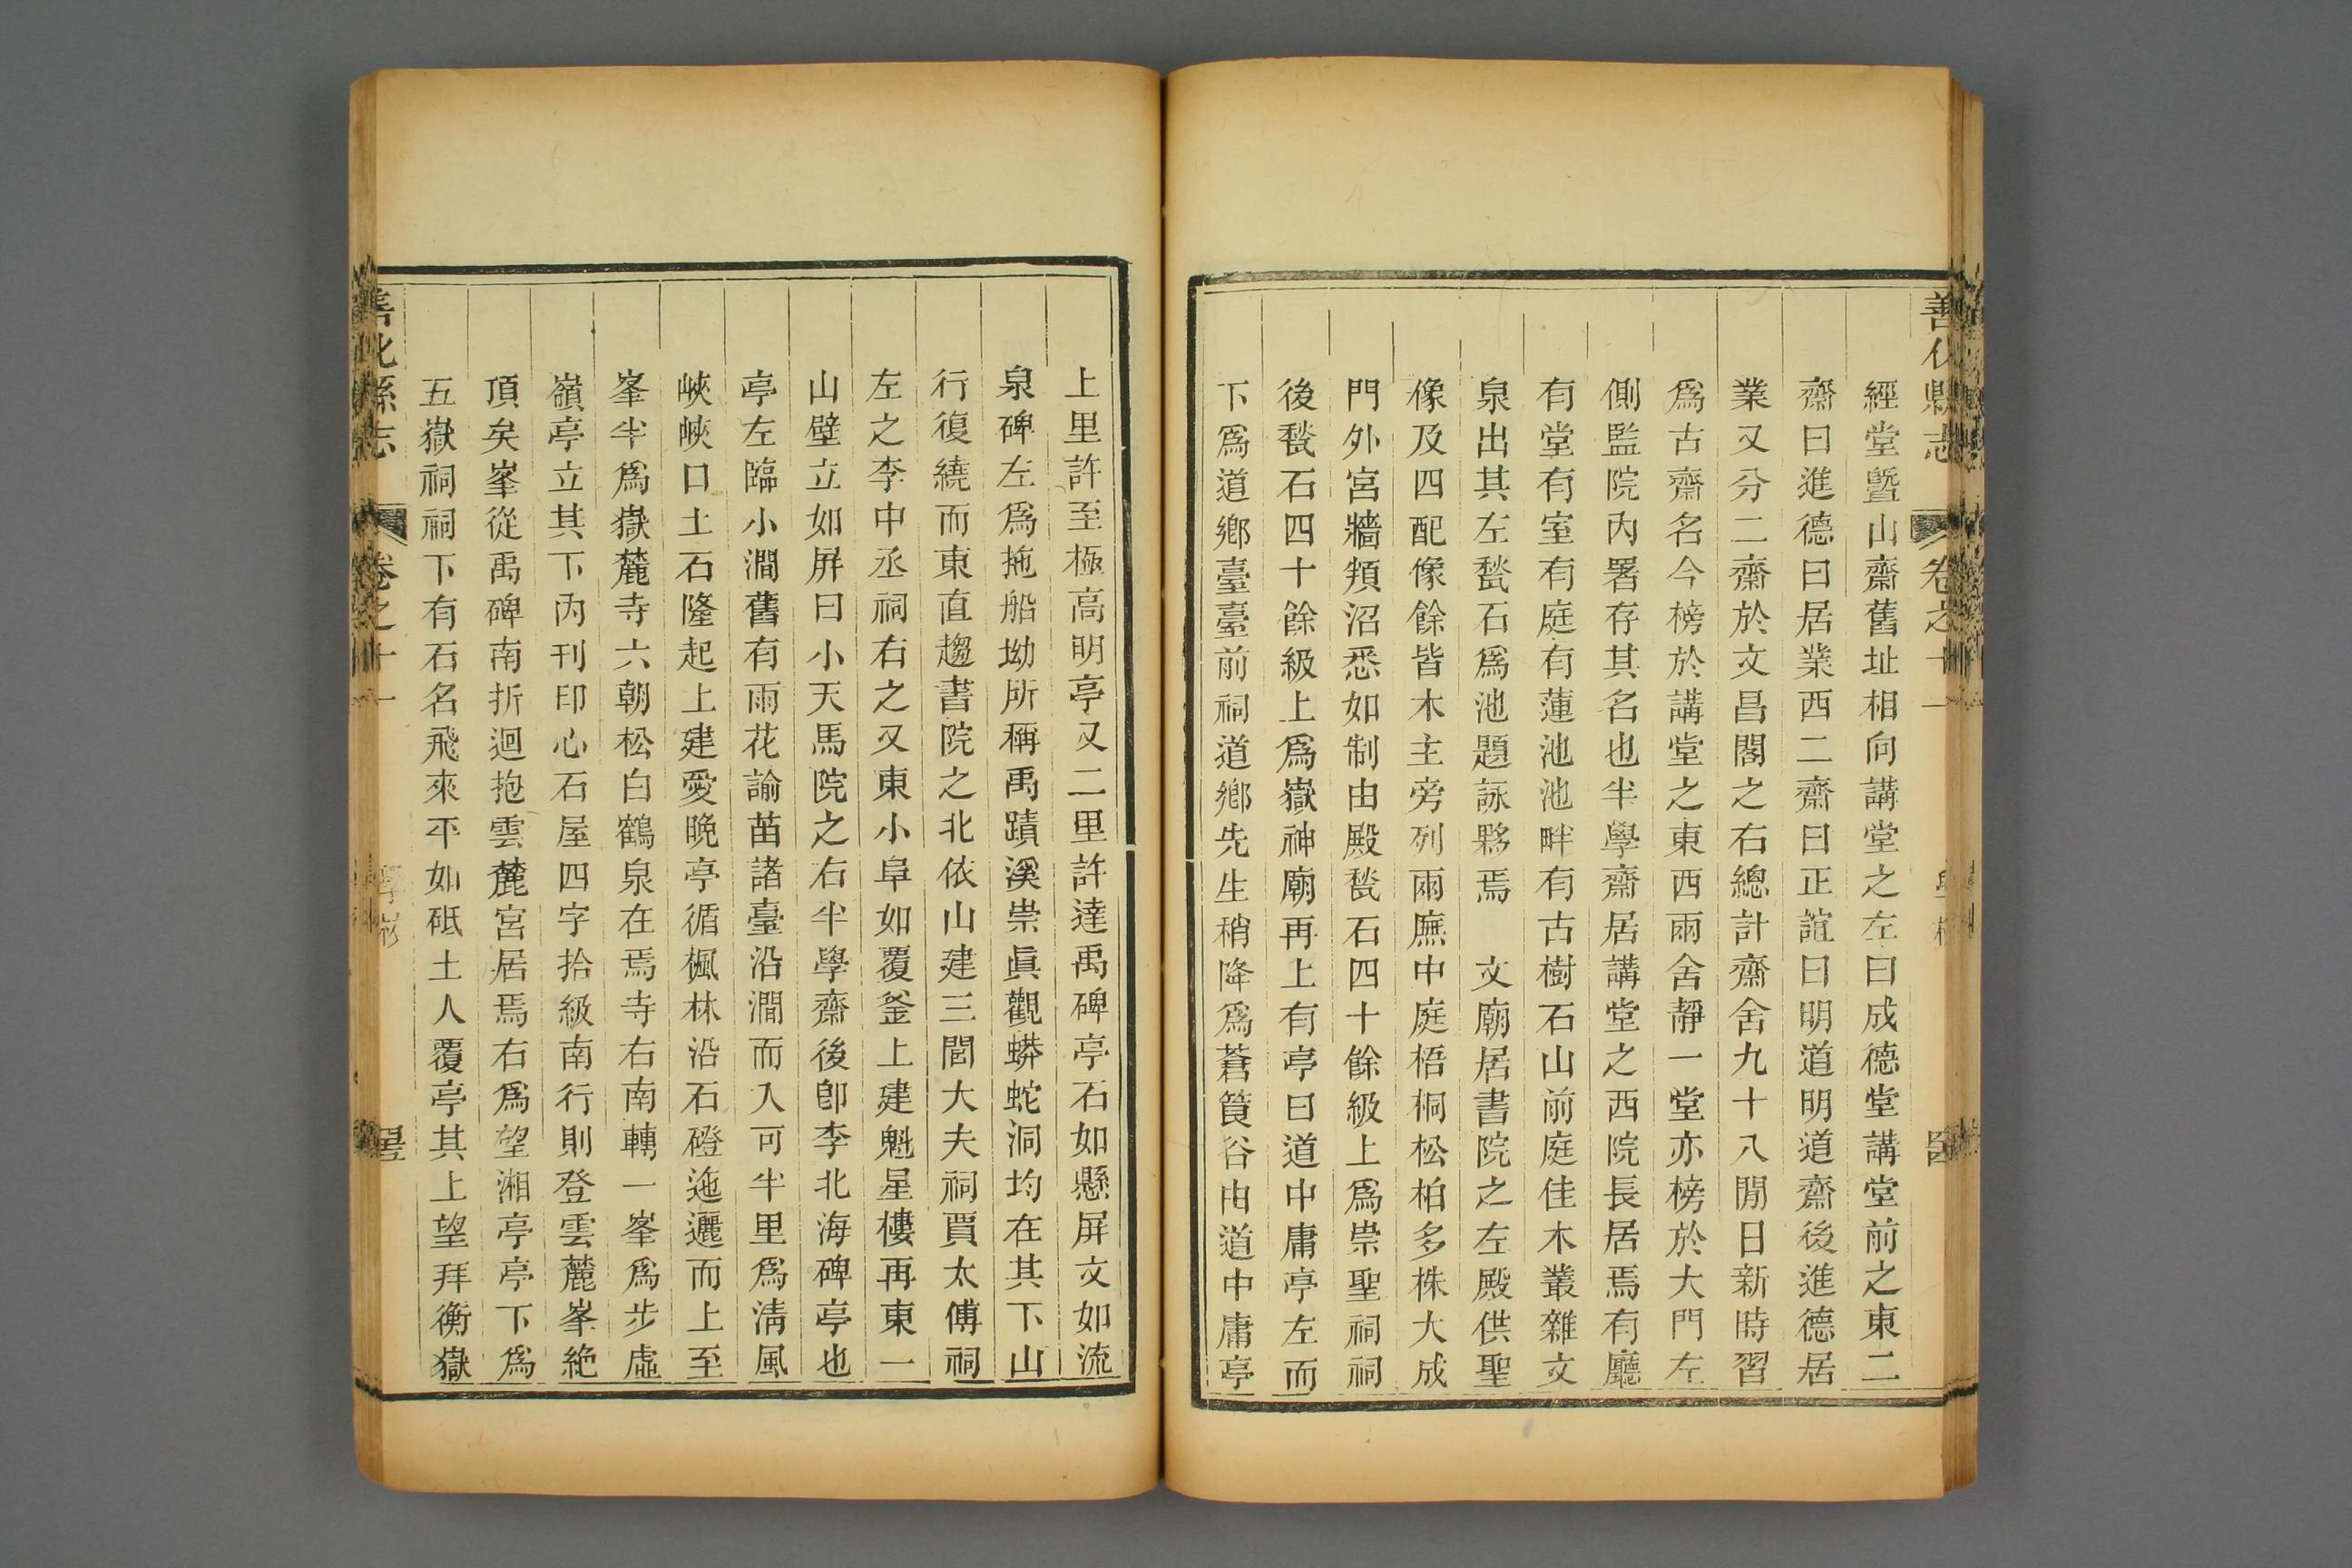 善化縣志
卷之十一
經堂暨山齋舊址相向講堂之左曰成德堂講堂前之東二
齋曰進德曰居業西二齋曰正誼曰明道明道齋後進德居
業又分二齋於文昌閣之右總計齋舍九十八間日新時習
爲古齋名今榜於講堂之東西兩舍靜一堂亦榜於大門左
側監院內署存其名也半學齋居講堂之西院長居焉有廳
有堂有室有庭有蓮池池畔有古樹石山前庭佳木叢雜文
泉出其左甃石爲池題詠夥焉 文廟居書院之左殿供聖
像及四配像餘皆木主旁列兩廡中庭梧桐松柏多株大成
門外宮牆頖沼悉如制由殿甃石四十餘級上爲崇聖祠祠
後甃石四十餘級上爲嶽神廟再上有亭曰道中庸亭左而
下爲道鄉臺臺前祠道鄉先生稍降爲蒼筤谷由道中庸亭
上里許至極高明亭又二里許達禹碑亭石如懸屏文如流
泉碑左爲拖船坳所稱禹蹟溪崇眞觀蟒蛇洞均在其下山
行復繞而東直趨書院之北依山建三閭大夫祠賈太傅祠
左之李中丞祠右之又東小阜如覆釜上建魁星樓再東一
山壁立如屏曰小天馬院之右半學齋後卽李北海碑亭也
亭左臨小澗舊有雨花諭苗諸臺沿澗而入可半里爲清風
峽峽口土石隆起上建愛晚亭循楓林沿石磴迤邐而上至
峯半爲嶽麓寺六朝松白鶴泉在焉寺右南轉一峯爲步虛
嶺亭立其下內刊印心石屋四字拾級南行則登雲麓峯絶
頂矣峯從禹碑南折迴抱雲麓宮居焉右爲望湘亭亭下爲
五嶽祠祠下有石名飛來平如砥土人覆亭其上望拜衡嶽
善化縣志
卷之十一